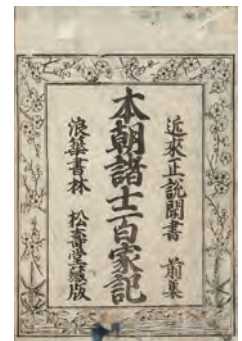 近來正説聞書　前集
本朝諸士百家記
浪華書林　松壽堂藏版